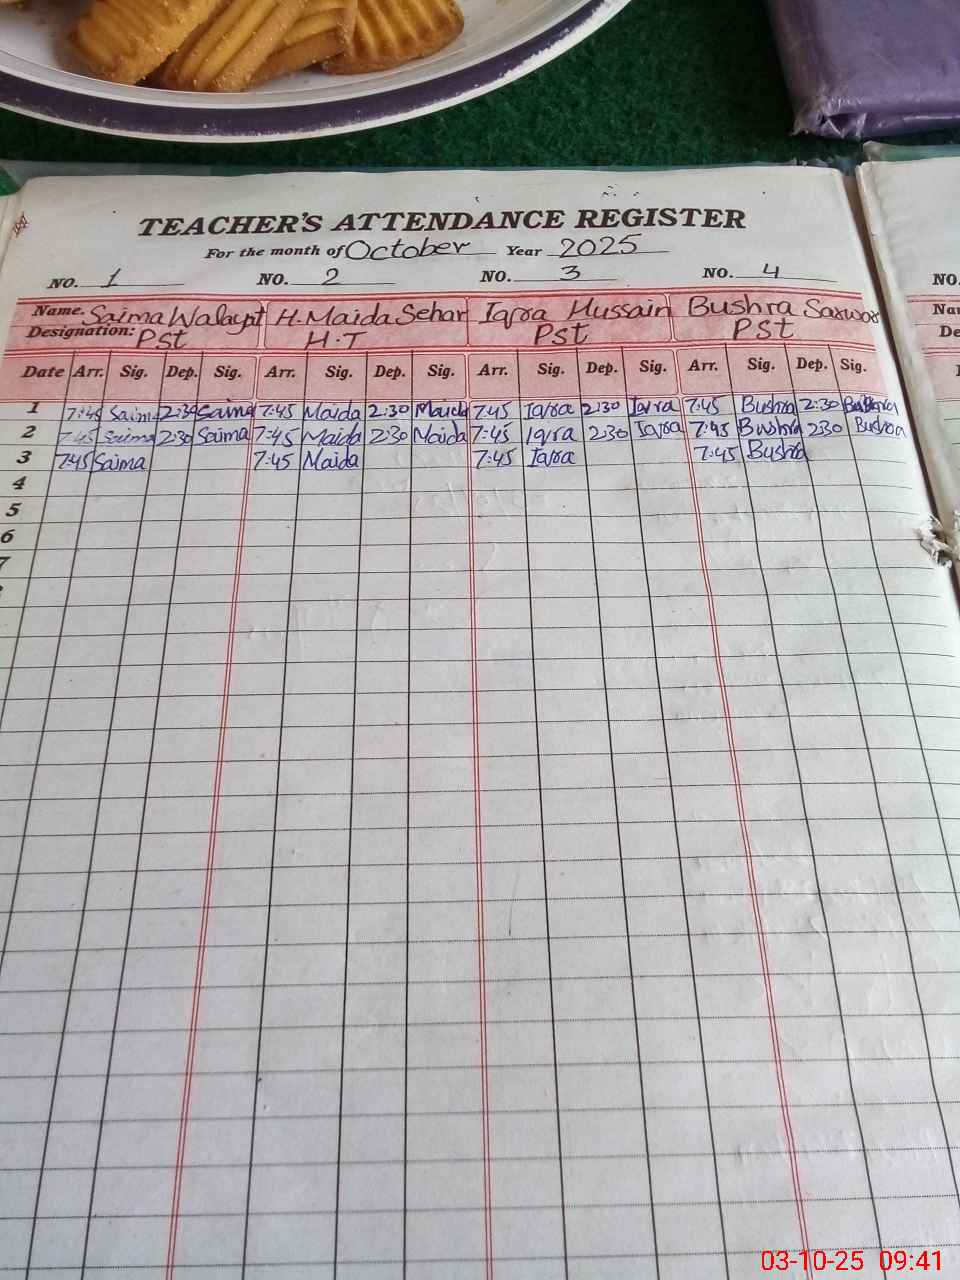 TEACHER'S ATTENDANCE REGISTER
For the month of October Year 2025
NO. 1 NO. 2 NO. 3 NO. 4 NO.
Name. Saima Walayat H. Maida Sehar Iqra Hussain Bushra Sarwar Na
Designation: Pst H.T Pst PST De
Date Arr. Sig. Dep. Sig. Arr. Sig. Dep. Sig. Arr. Sig. Dep. Sig. Arr. Sig. Dep. Sig.
1 7:45 Saima 2:30 Saima 7:45 Maida 2:30 Maida 7:45 Iqra 2:30 Iqra 7:45 Bushra 2:30 Bushra
2 7:45 Saima 2:30 Saima 7:45 Maida 2:30 Maida 7:45 Iqra 2:30 Iqra 7:45 Bushra 230 Bushra
3 7:45 Saima 7:45 Maida 7:45 Iqra 7:45 Bushra
4
5
6
7
03-10-25 09:41